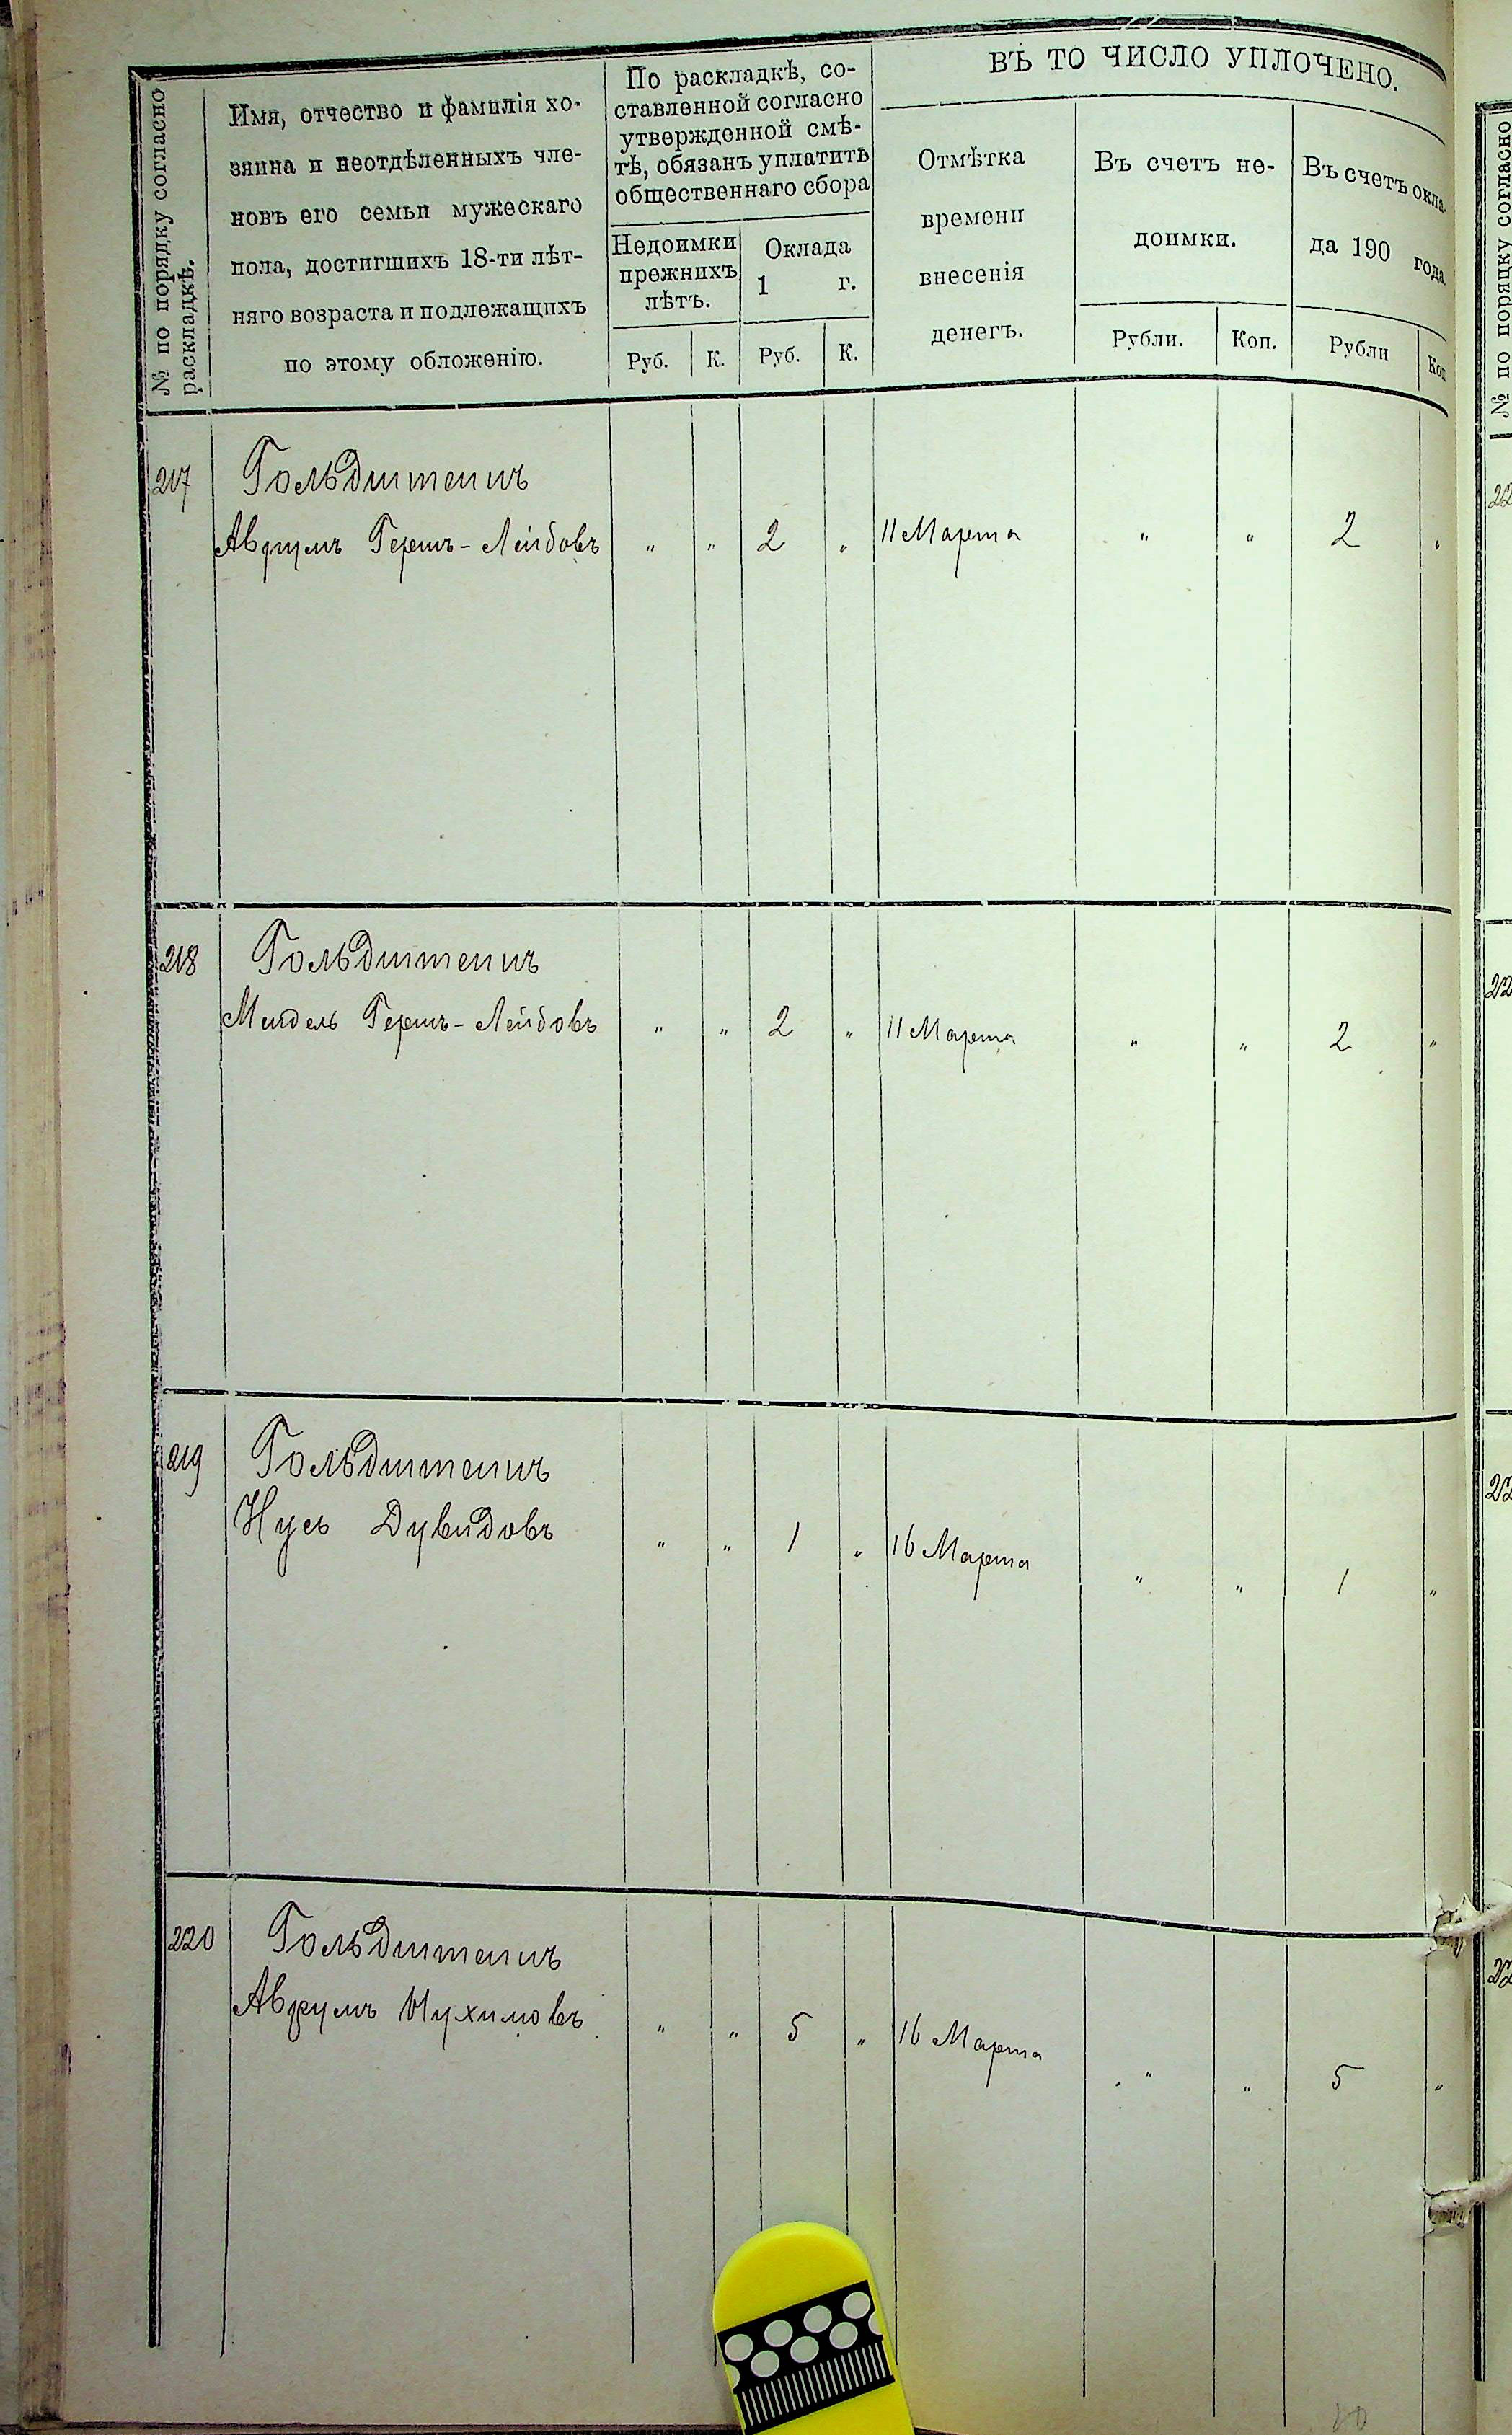 № по порядку согласно
раскладкѣ.
Имя, отчество и фамилія хо-
зяина и неотдѣленныхъ чле-
новъ его семьи мужескаго
пола, достигшихъ 18-ти лѣт-
няго возраста и подлежащихъ
по этому обложенію.
По раскладкѣ, со-
ставленной согласно
утвержденной смѣ-
тѣ, обязанъ уплатить
общественнаго сбора
Недоимки
прежнихъ
лѣтъ.
Руб. К.
Оклада
1 г.
Руб. К.
ВЪ ТО ЧИСЛО УПЛОЧЕНО.
Отмѣтка
времени
внесенія
денегъ.
Въ счетъ не-
доимки.
Рубли. Коп.
Въ счетъ окла-
да 190 года
Рубли Коп
217 Гольдштейнъ
Аврумъ Гершъ-Лейбовъ „ „ 2 „ 11 Марта „ „ 2 „
218 Гольдштейнъ
Мендель Гершъ-Лейбовъ „ „ 2 „ 11 Марта „ „ 2 „
219 Гольдштейнъ
Нусь Дувидовъ „ „ 1 „ 16 Марта „ „ 1 „
220 Гольдштейнъ
Аврумъ Нухимовъ „ „ 5 „ 16 Марта „ „ 5 „
№ по порядку согласно